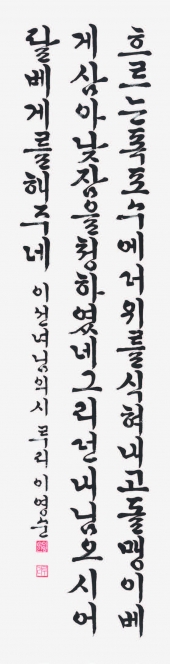 흐르는폭포수에더위를식혀내고돌맹이베
게삼아낮잠을청하였네그리던내님오시어
달베게를해주네 이산내님의시 뚝리이영순